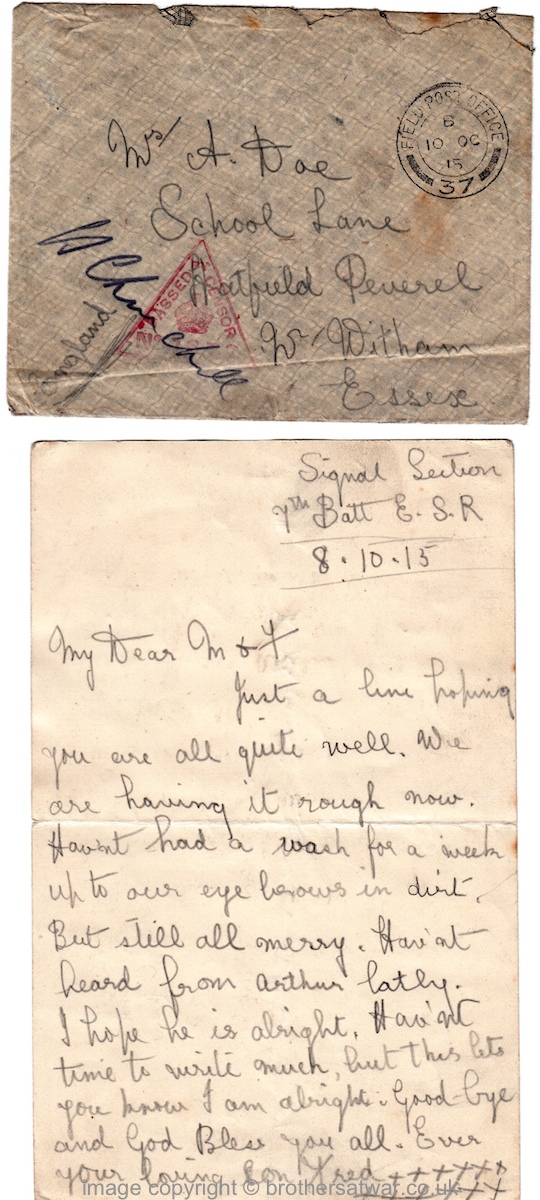 FIELD POST OFFICE
B
10 OC
15
37
Mrs A. Doe
School Lane
Hatfield Peverel
Nr Witham
Essex
England
PASSED BY CENSOR
No
Churchill
Signal Section
7th Batt E.S.R
8.10.15
My Dear M & F
Just a line hoping
you are all quite well. We
are having it rough now.
Hav'nt had a wash for a week
up to our eye brows in dirt.
But still all merry. Hav'nt
heard from Arthur latly.
I hope he is alright. Hav'nt
time to write much, but this lets
you know I am alright. Good-bye
and God Bless you all. Ever
your loving Son Fred ++++++
image copyright © brothersatwar.co.uk